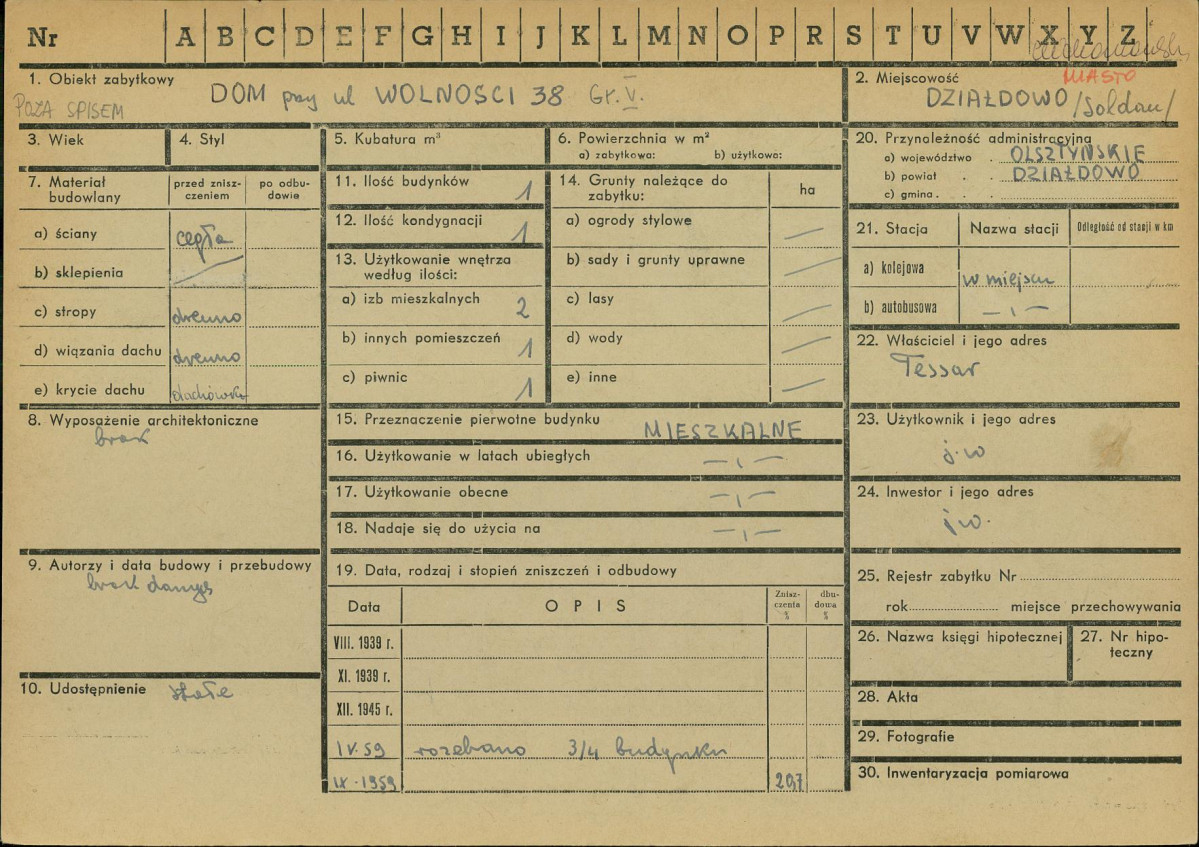 Nr A B C D E F G H I J K L M N O P R S T U V W X Y Z
1. Obiekt zabytkowy
DOM przy ul WOLNOSCI 38 Gr. V.
POZA SPISEM
2. Miejscowość
MIASTO
DZIAŁDOWO /Soldau/
3. Wiek
4. Styl
5. Kubatura m³
6. Powierzchnia w m²
a) zabytkowa: b) użytkowo:
7. Materiał budowlany
przed zniszczeniem
po odbudowie
a) ściany cegła
b) sklepienia —
c) stropy drewno
d) wiązania dachu drewno
e) krycie dachu dachówka
8. Wyposażenie architektoniczne
brak
9. Autorzy i data budowy i przebudowy
brak danych
10. Udostępnienie stałe
11. Ilość budynków 1
12. Ilość kondygnacji 1
13. Użytkowanie wnętrza
według ilości:
a) izb mieszkalnych 2
b) innych pomieszczeń 1
c) piwnic 1
14. Grunty należące do
zabytku:
ha
a) ogrody stylowe —
b) sady i grunty uprawne —
c) lasy —
d) wody —
e) inne —
15. Przeznaczenie pierwotne budynku MIESZKALNE
16. Użytkowanie w latach ubiegłych —,—
17. Użytkowanie obecne —,—
18. Nadaje się do użycia na —,—
19. Data, rodzaj i stopień zniszczeń i odbudowy
Data OPIS Zniszczenia % dbudowa %
VIII. 1939 r.
XI. 1939 r.
XII. 1945 r.
IV.59 rozebano 3/4 budynku
IX-1959 20,7
20. Przynależność administracyjna
a) województwo . OLSZTYŃSKIE
b) powiat . . DZIAŁDOWO
c) gmina . . .
21. Stacja Nazwa stacji Odległość od stacji w km
a) kolejowa w miejscu
b) autobusowa —,—
22. Właściciel i jego adres
Tessar
23. Użytkownik i jego adres
j.w
24. Inwestor i jego adres
j.w.
25. Rejestr zabytku Nr
rok miejsce przechowywania
26. Nazwa księgi hipotecznej
27. Nr hipoteczny
28. Akta
29. Fotografie
30. Inwentaryzacja pomiarowa